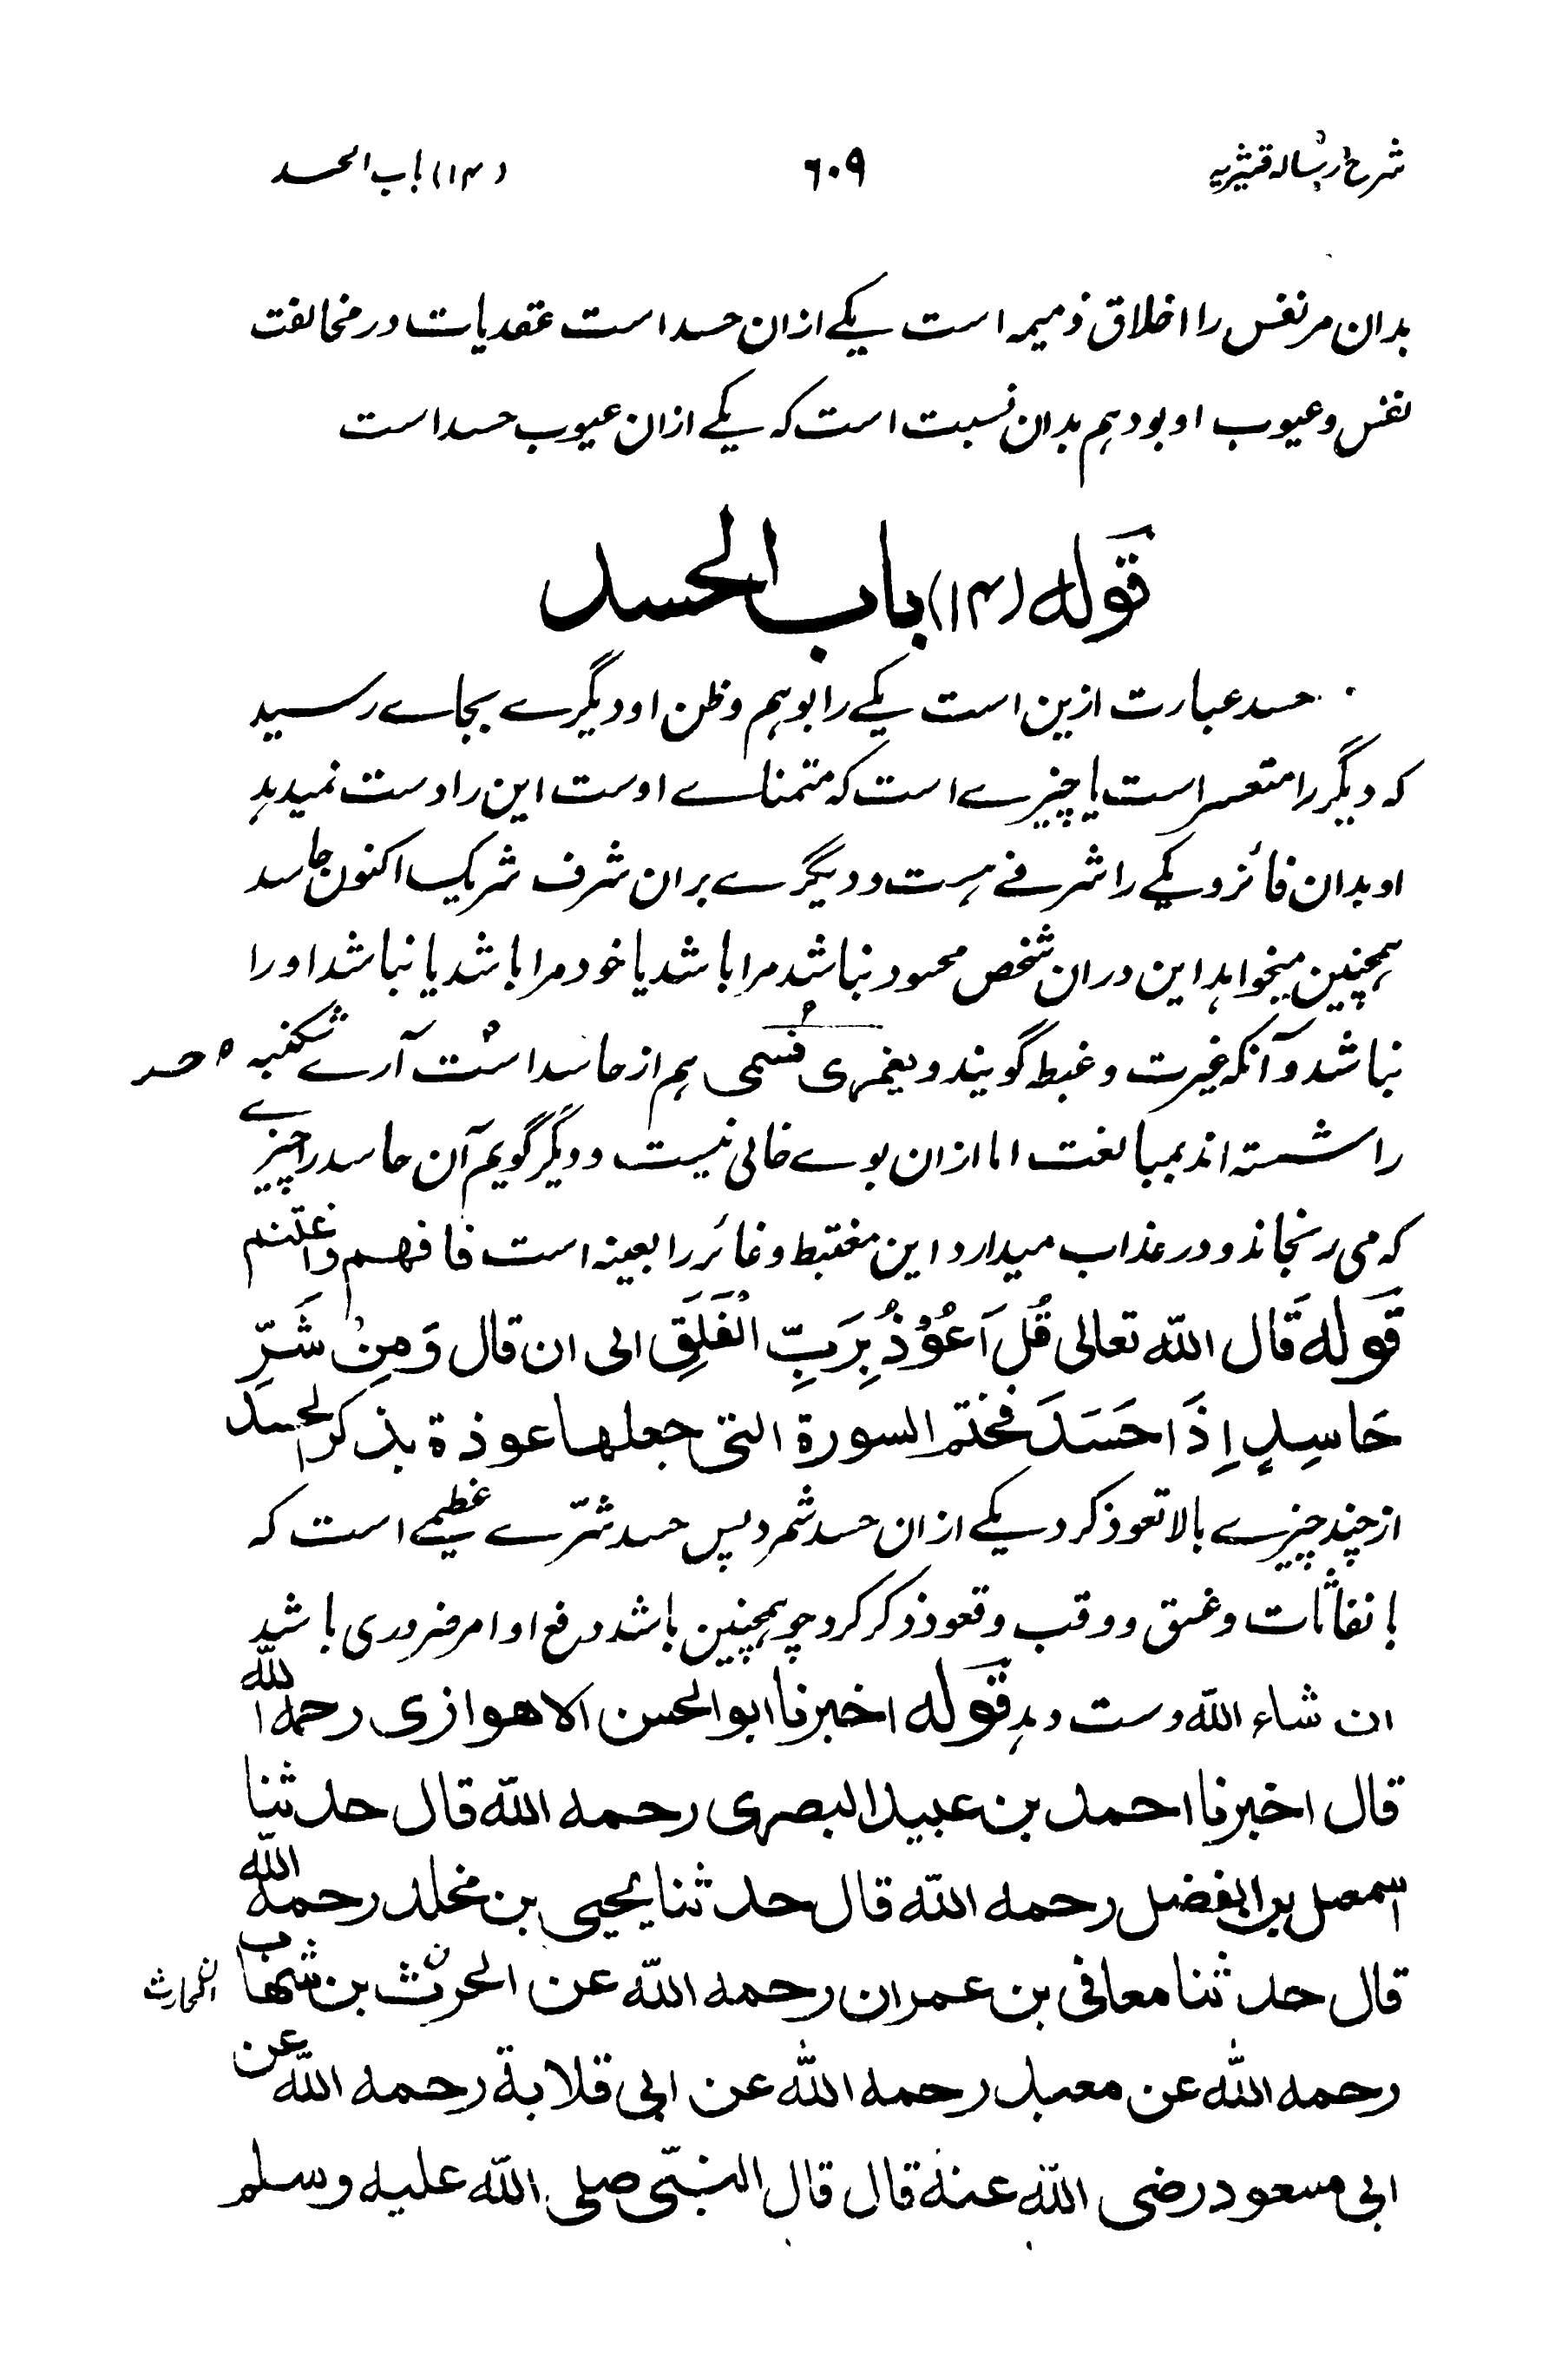 شرح رسالہ قشیریہ ٦٠٩ (١٤) باب الحسد
بدان مر نفس را اخلاق ذمیمہ است یکے ازان حسد است عقدیات در مخالفت
نفس و عیوب او بود ہم بدان نسبت است کہ یکے ازان عیوب حسد است
قَولہ (١٤) باب الحسد
حسد عبارت ازین است یکے را بوہم وظن او دیگرے بجاے رسید
کہ دیگر را متعسر است یا چیزے است کہ متمناے اوست این را دست نمیدہد
او بدان فائز و یکے را شرفے ہست و دیگرے بران شرف شریک اکنون حاسد
ہمچنین میخواہد این دران شخص محسود نباشد مرا باشد یا خود مرا باشد یا نباشد او را
نباشد و آنکہ غیرت و غبطہ گویند و بغمہری قسمی ہم از حاسد است آرے شکنبہ ہ حسد
را شستہ اند بمبالغت اما ازان بوے خالی نیست و دیگر گویم آن حاسد را چیزے
کہ می رنجاند و در عذاب میدارد این مغتبط و غائر را بعینہ است فافہم واغتنم
قَولہ قَال اللّٰہ تعالی قُل اَعُوْذُ بِرَبِّ الْفَلَقِ الی ان قال وَمِنْ شَرِّ
حَاسِدٍ اِذَا حَسَدَ فختم السورة التی جعلها عوذة بذکر الحسد
از چند چیزے بالا تعوذ کرد یکے ازان حسد شمرد پس حسد شرّے عظیمے است کہ
با نفاثات و غسق و وقب و تعوذ ذکر کرد چو ہمچنین باشد دفع او امر ضروری باشد
ان شاء اللّٰہ دست دہد قَولہ اخبرنا ابو الحسن الاهوازی رحمه اللّٰہ
قال اخبرنا احمد بن عبید البصری رحمه اللّٰہ قال حدثنا
اسمعیل بن الفضل رحمه اللّٰہ قال حدثنا یحیی بن مخلد رحمه اللّٰہ
قال حدثنا معافی بن عمران رحمه اللّٰہ عن الحرث بن شهاب ن الحارث
رحمه اللّٰہ عن معبد رحمه اللّٰہ عن ابی قلابة رحمه اللّٰہ عن
ابی مسعود رضی اللّٰہ عنه قال قال النبّی صلی اللّٰہ علیه وسلم